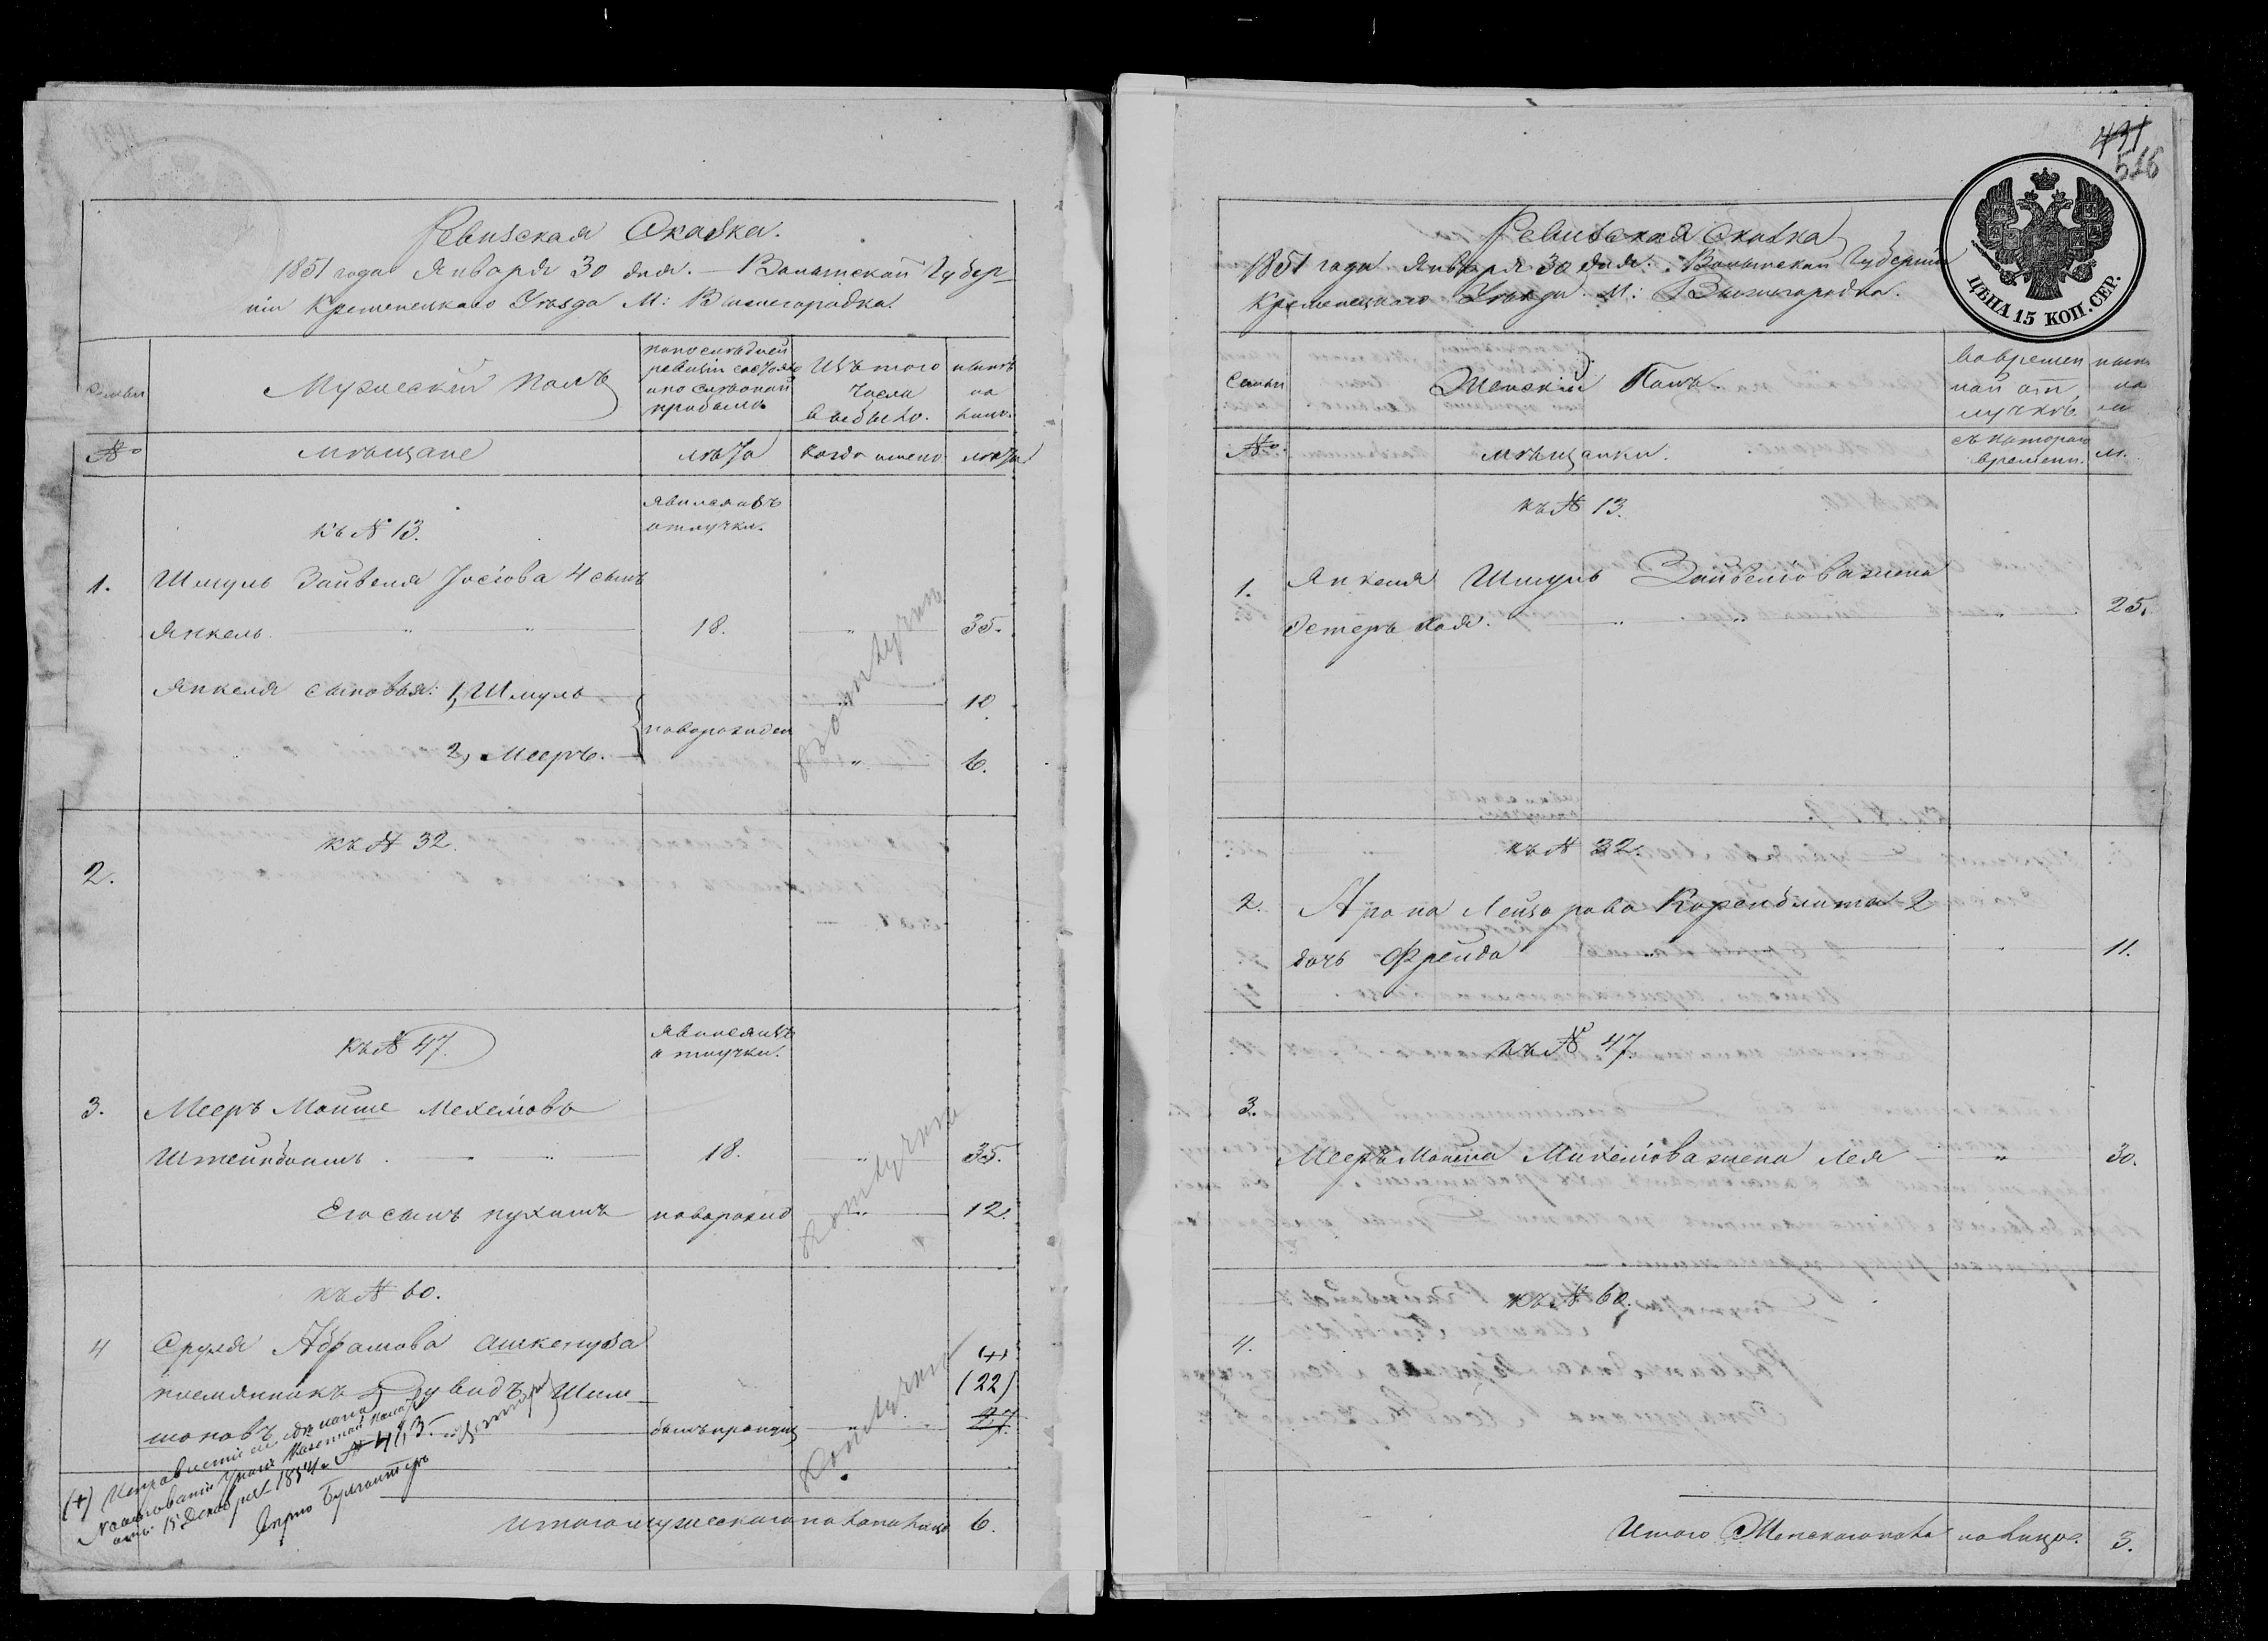 Ревизская Сказка.
1851 года Января 30 дня. — Волынской Губер-
ніи Кременецкаго Уѣзда М: Вышегородка.
Семьи
Мужескій полъ
по последней
ревизіи состояло
и после оной
прибыло
Изъ того
числа
выбыло.
нынѣ
на
лицо.
№
мѣщане
лѣта
когда имено
лѣта
явился изъ
отлучки.
къ № 13.
1.
Шмуль Зайвеля Јосіова 4 сынъ
Янкель
18.
35.
Янкеля сыновья: 1, Шмуль
10.
новорожден
2, Мееръ.
6.
къ № 32.
2.
явился изъ
отлучки.
къ № 47.
3.
Мееръ Мойше Мехелiовъ
Штейнбокъ
18.
35.
Его сынъ Нухимъ
новорожд
12.
къ № 60.
4
Сруля Абрамова Ашкенуза
(+)
племянникъ Дувидъ Шли-
(22)
моновъ
былъ пропущ
27.
(+)
отъ 15 Декабря 1854 г. № 4113.
Вѣрно Бухгалтеръ
Итого мужескаго пола на лицо 6.
431
516
ЦѢНА 15 КОП. СЕР.
Ревизская Сказка
1851 года Января 30 дня. Волынской Губерніи
Кременецкаго Уѣзда М: Вышегородка.
Семьи
Женскій Полъ.
Во времен
ной отъ
лучкѣ.
нынѣ
на
ли
№.
мѣщанки.
съ котораго
времени.
л.
къ № 13.
1.
Янкеля Шмуль Зайвелiова жена
Эстеръ Хая.
25.
къ № 32.
2.
Арона Лейзорова Коренблита 2
дочь Фрейда
11.
къ № 47.
3.
Мееръ Мойша Михелiова жена Лея
30.
къ № 60.
4.
Итого Женскаго пола на лицо.
3.